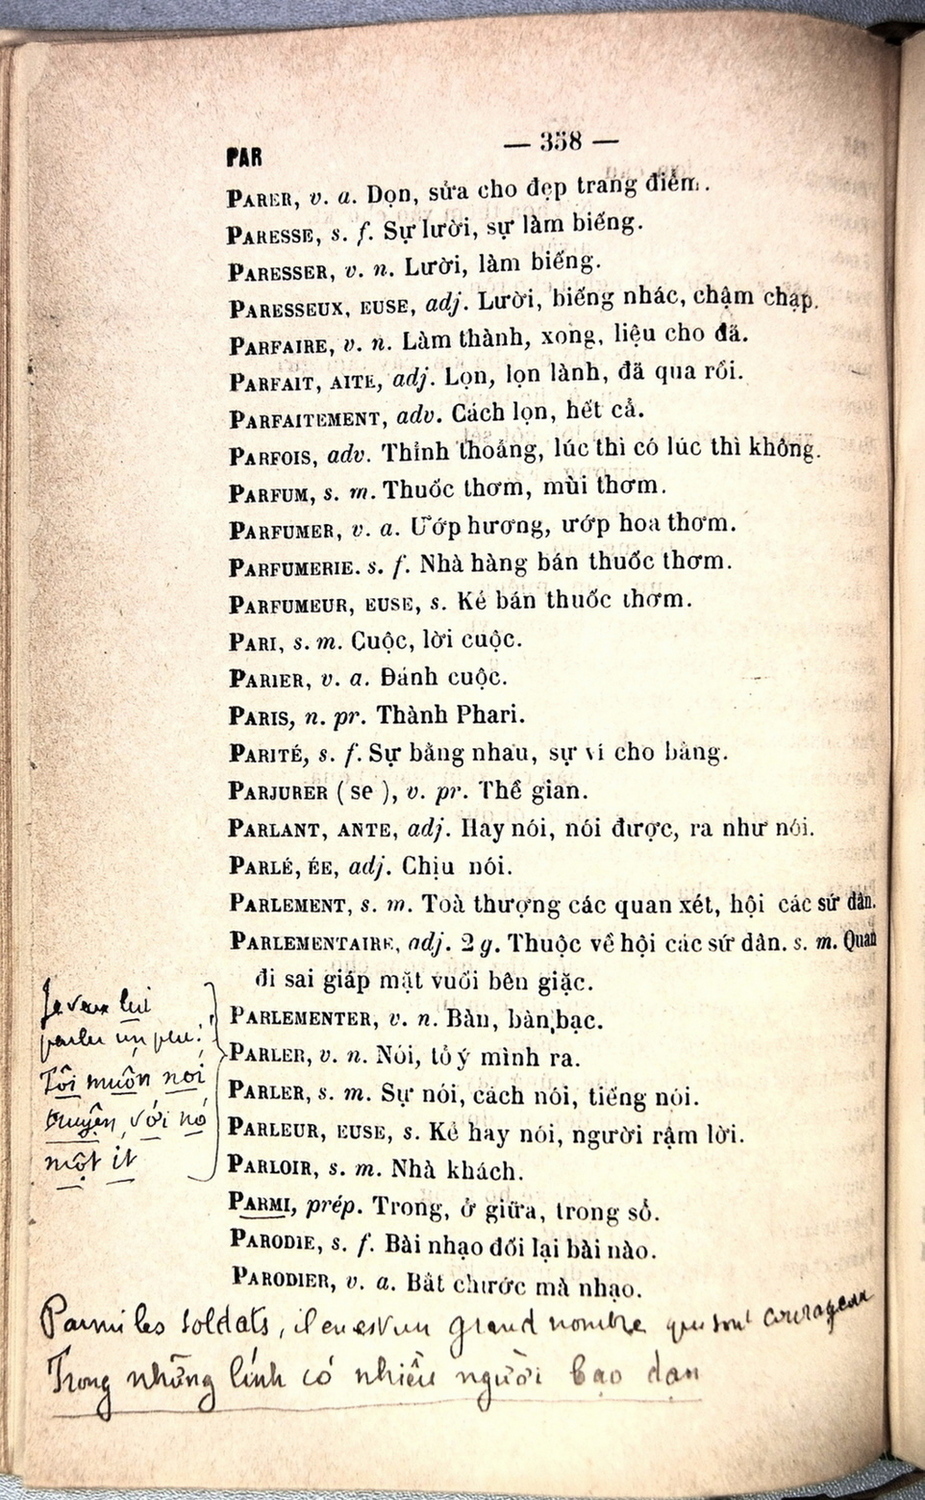 PAR
— 358 —
PARER, v. a. Dọn, sửa cho đẹp trang điểm.
PARESSE, s. f. Sự lười, sự làm biếng.
PARESSER, v. n. Lười, làm biếng.
PARESSEUX, EUSE, adj. Lười, biếng nhác, chậm chạp.
PARFAIRE, v. n. Làm thành, xong, liệu cho đã.
PARFAIT, AITE, adj. Lọn, lọn lành, đã qua rồi.
PARFAITEMENT, adv. Cách lọn, hết cả.
PARFOIS, adv. Thỉnh thoảng, lúc thì có lúc thì không.
PARFUM, s. m. Thuốc thơm, mùi thơm.
PARFUMER, v. a. Ướp hương, ướp hoa thơm.
PARFUMERIE. s. f. Nhà hàng bán thuốc thơm.
PARFUMEUR, EUSE, s. Kẻ bán thuốc thơm.
PARI, s. m. Cuộc, lời cuộc.
PARIER, v. a. Đánh cuộc.
PARIS, n. pr. Thành Phari.
PARITÉ, s. f. Sự bằng nhau, sự ví cho bằng.
PARJURER (se), v. pr. Thề gian.
PARLANT, ANTE, adj. Hay nói, nói được, ra như nói.
PARLÉ, ÉE, adj. Chịu nói.
PARLEMENT, s. m. Toà thượng các quan xét, hội các sứ dân.
PARLEMENTAIRE, adj. 2 g. Thuộc về hội các sứ dân. s. m. Quan
đi sai giáp mặt vuối bên giặc.
PARLEMENTER, v. n. Bàn, bàn bạc.
PARLER, v. n. Nói, tỏ ý mình ra.
PARLER, s. m. Sự nói, cách nói, tiếng nói.
PARLEUR, EUSE, s. Kẻ hay nói, người rậm lời.
PARLOIR, s. m. Nhà khách.
PARMI, prép. Trong, ở giữa, trong số.
PARODIE, s. f. Bài nhạo đổi lại bài nào.
PARODIER, v. a. Bắt chước mà nhạo.
Je veux lui
parler un peu.
Tôi muốn nói
truyện với nó
một ít
Parmi les soldats, il en est un grand nombre qui sont courageux
Trong những lính có nhiều người bạo dạn